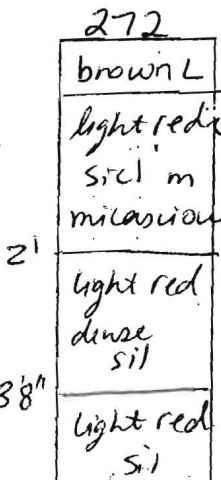 272
brown L
light
sicl m
2'
light red
dense
sil
3'8"
light red
sil